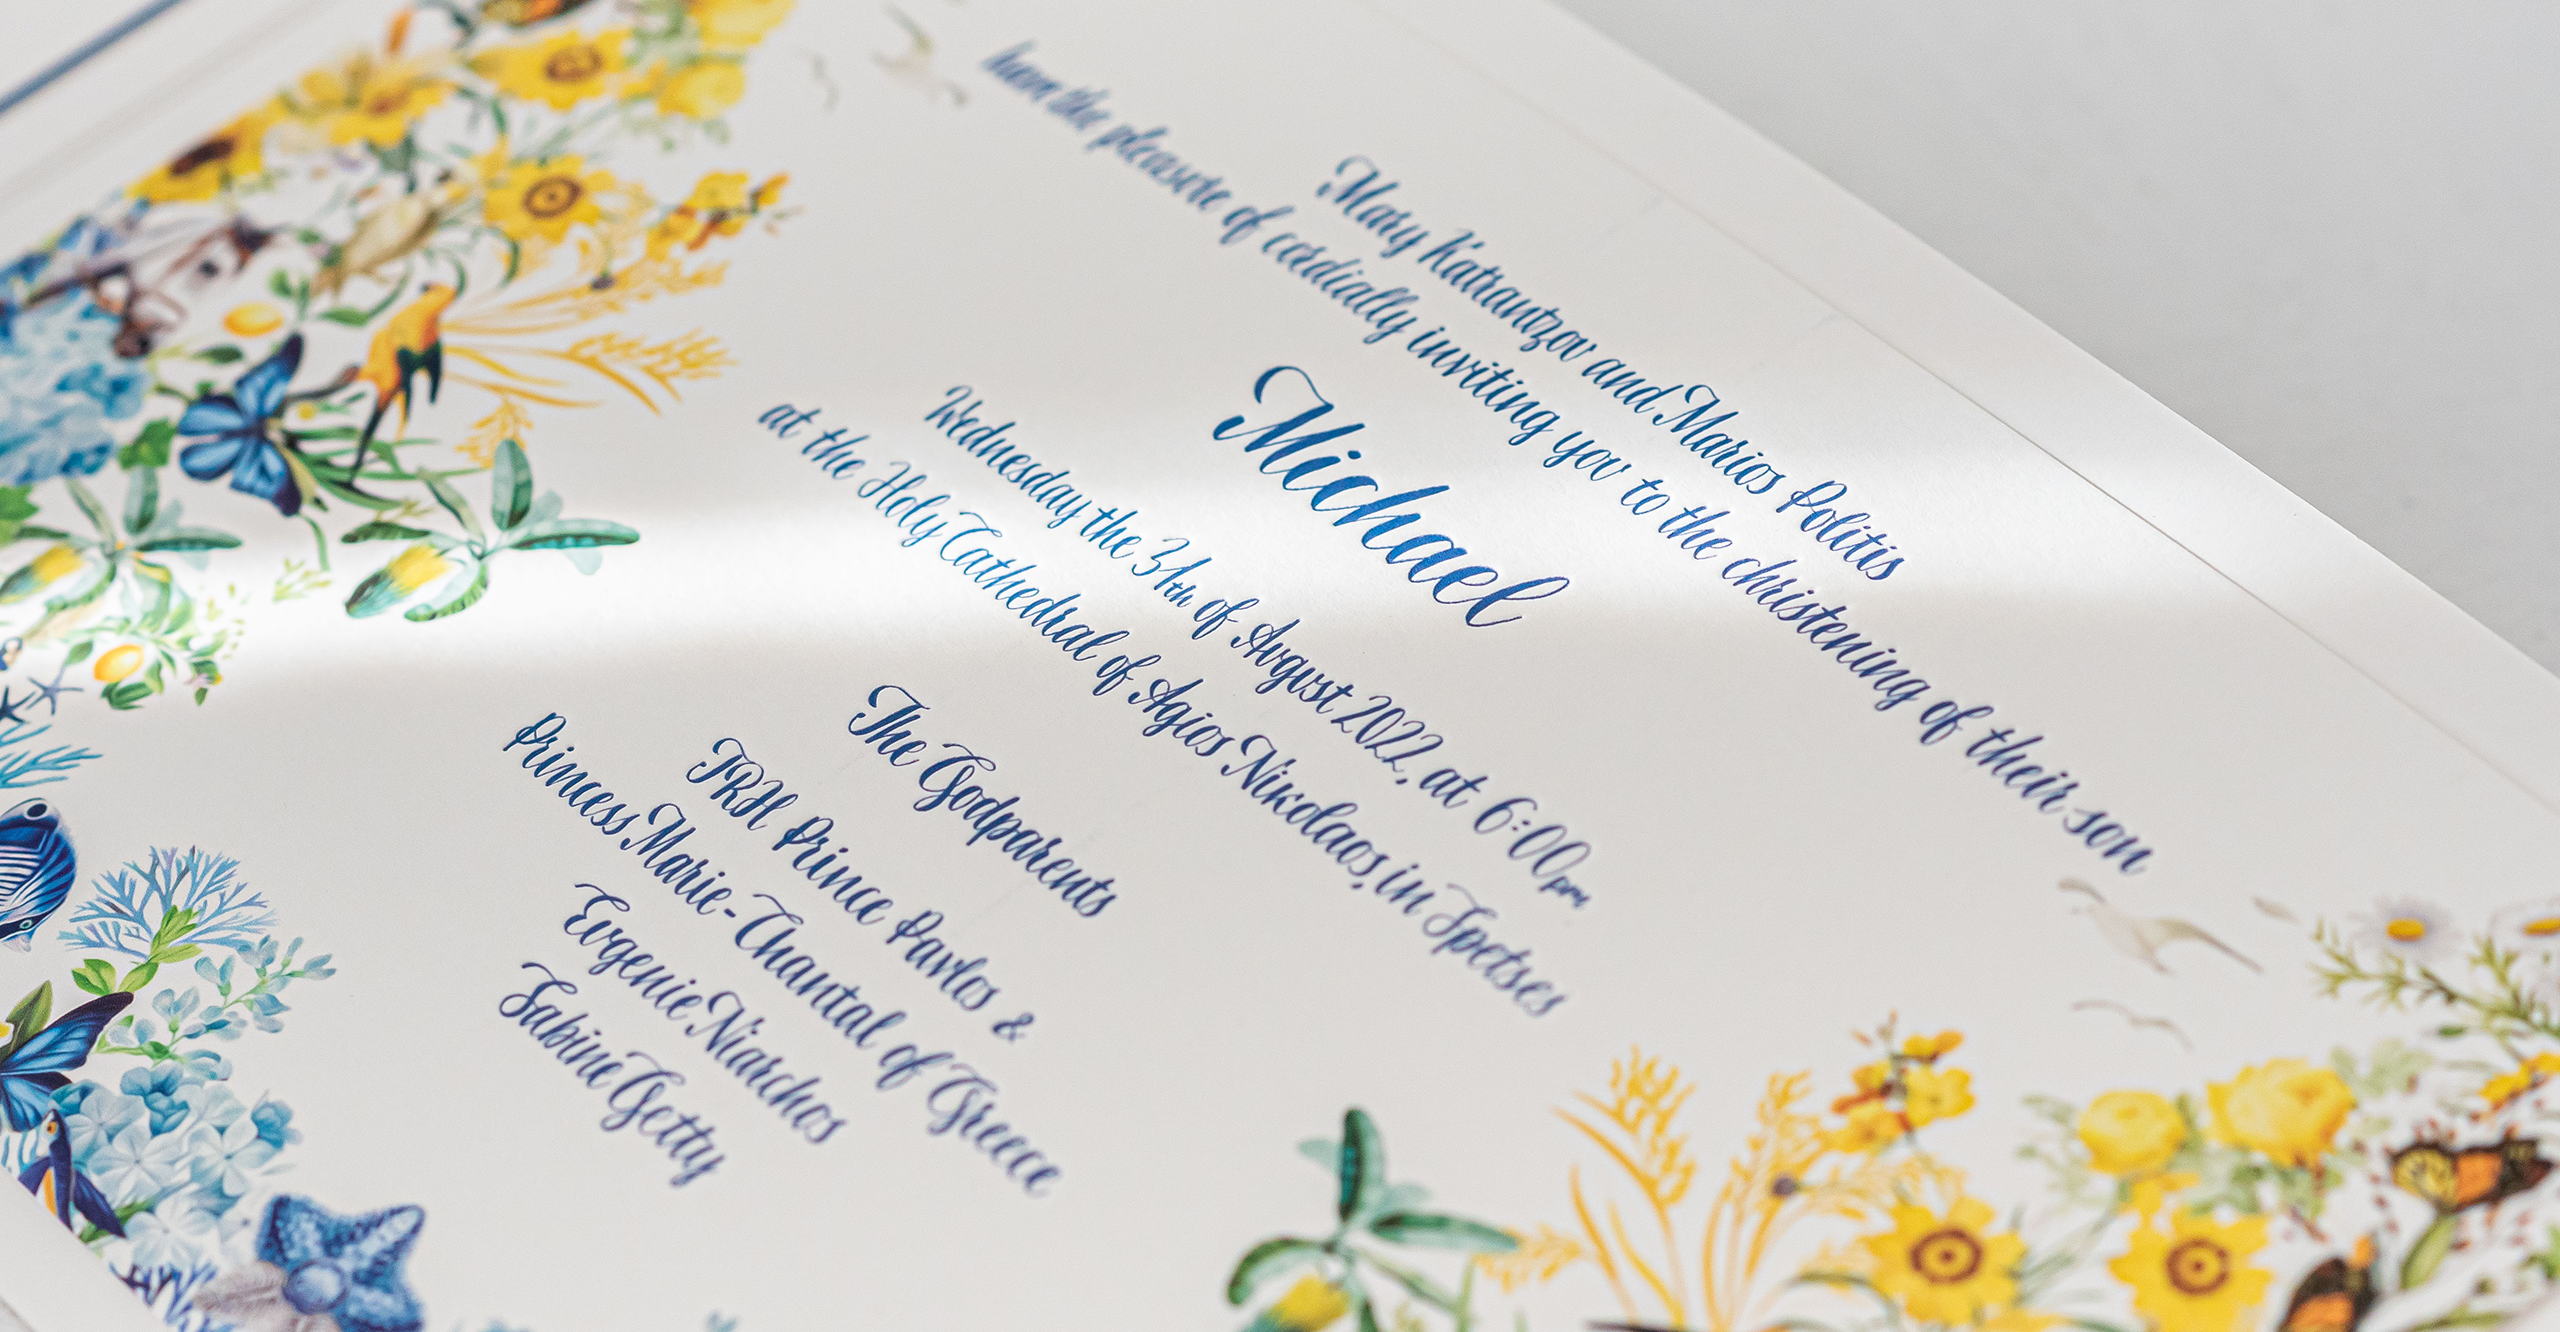 Mary Katrantzou and Marios Politis
have the pleasure of cordially inviting you to the christening of their son
Michael
Wednesday the 31th of August 2022, at 6:00pm
at the Holy Cathedral of Agios Nikolaos, in Spetses
The Godparents
TRH Prince Pavlos &
Princess Marie-Chantal of Greece
Evgenie Niarchos
Sabine Getty